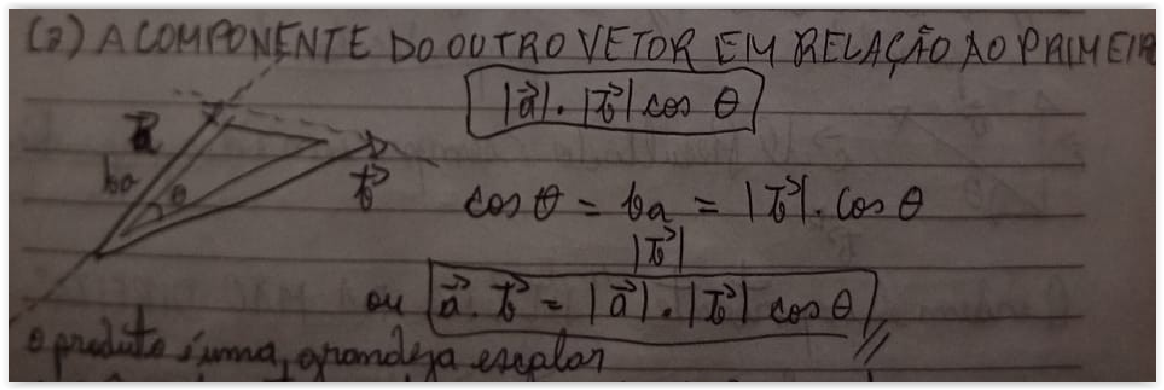 (2) A COMPONENTE DO OUTRO VETOR EM RELAÇÃO AO PRIMEIR
|a⃗|.|b⃗| cos θ
a⃗
ba
θ
b⃗
cos θ = ba = |b⃗|. cos θ
|b⃗|
ou a⃗. b⃗ = |a⃗|.|b⃗| cos θ //
o produto é uma, grandeza escalar